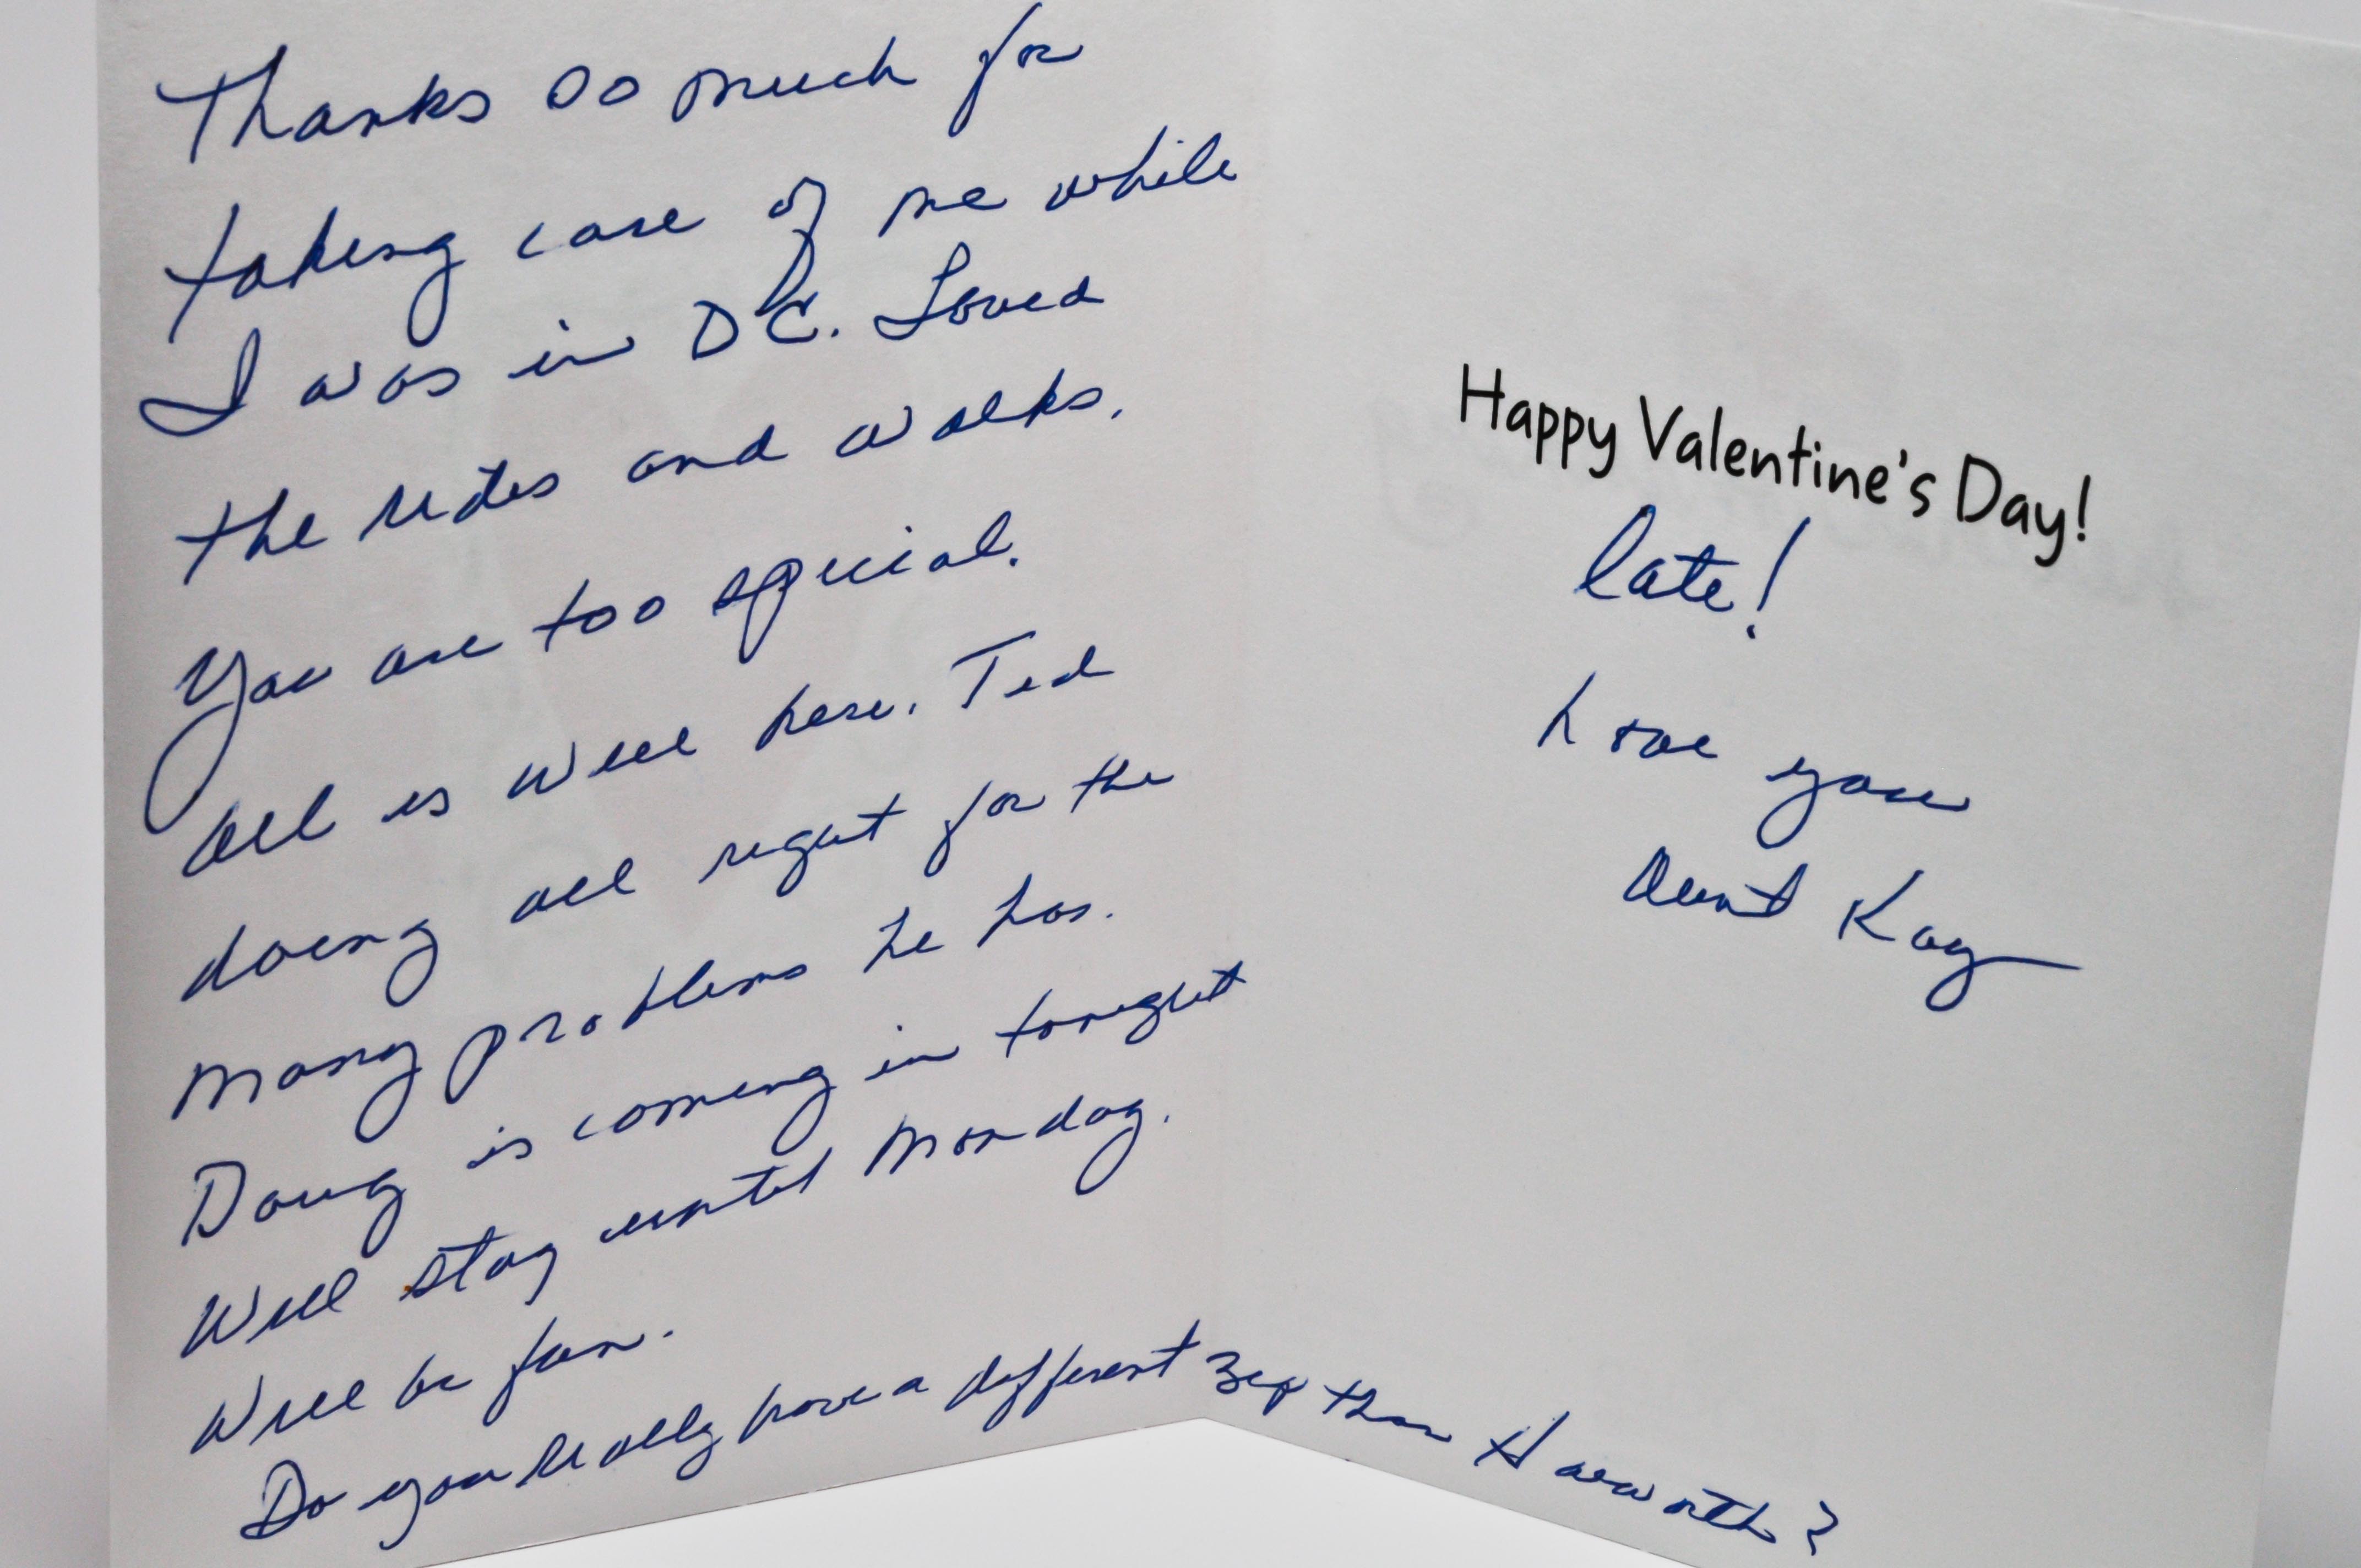 Thanks so much for
taking care of me while
I was in DC. Loved
the rides and walks.
You are too special.
All is well here. Ted
doing all right for the
many problems he has.
Doug is coming in tonight
Will stay until Monday.
Will be fun.
Do you really have a different zip than Haworth?
Happy Valentine's Day!
late!
Love you
Aunt Kay